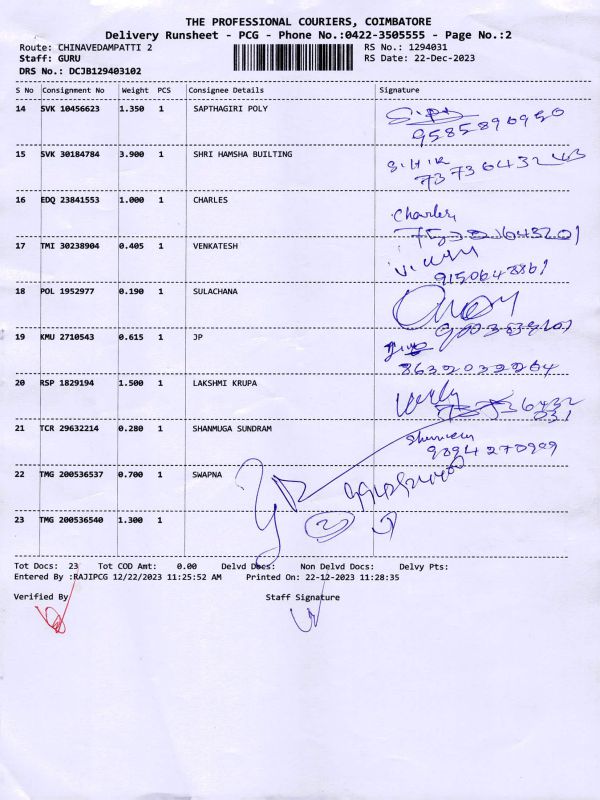 THE PROFESSIONAL COURIERS, COIMBATORE
Delivery Runsheet - PCG - Phone No.:0422-3505555 - Page No.:2
Route: CHINAVEDAMPATTI 2 RS No.: 1294031
Staff: GURU RS Date: 22-Dec-2023
DRS No.: DCJB129403102
S No Consignment No Weight PCS Consignee Details Signature
14 SVK 10456623 1.350 1 SAPTHAGIRI POLY
15 SVK 30184784 3.900 1 SHRI HAMSHA BUILTING
16 EDQ 23841553 1.000 1 CHARLES Charles
17 TMI 30238904 0.405 1 VENKATESH
18 POL 1952977 0.190 1 SULACHANA
19 KMU 2710543 0.615 1 JP
20 RSP 1829194 1.500 1 LAKSHMI KRUPA
21 TCR 29632214 0.280 1 SHANMUGA SUNDRAM
22 TMG 200536537 0.700 1 SWAPNA
23 TMG 200536540 1.300 1
Tot Docs: 23 Tot COD Amt: 0.00 Delvd Docs: Non Delvd Docs: Delvy Pts:
Entered By :RAJIPCG 12/22/2023 11:25:52 AM Printed On: 22-12-2023 11:28:35
Verified By Staff Signature